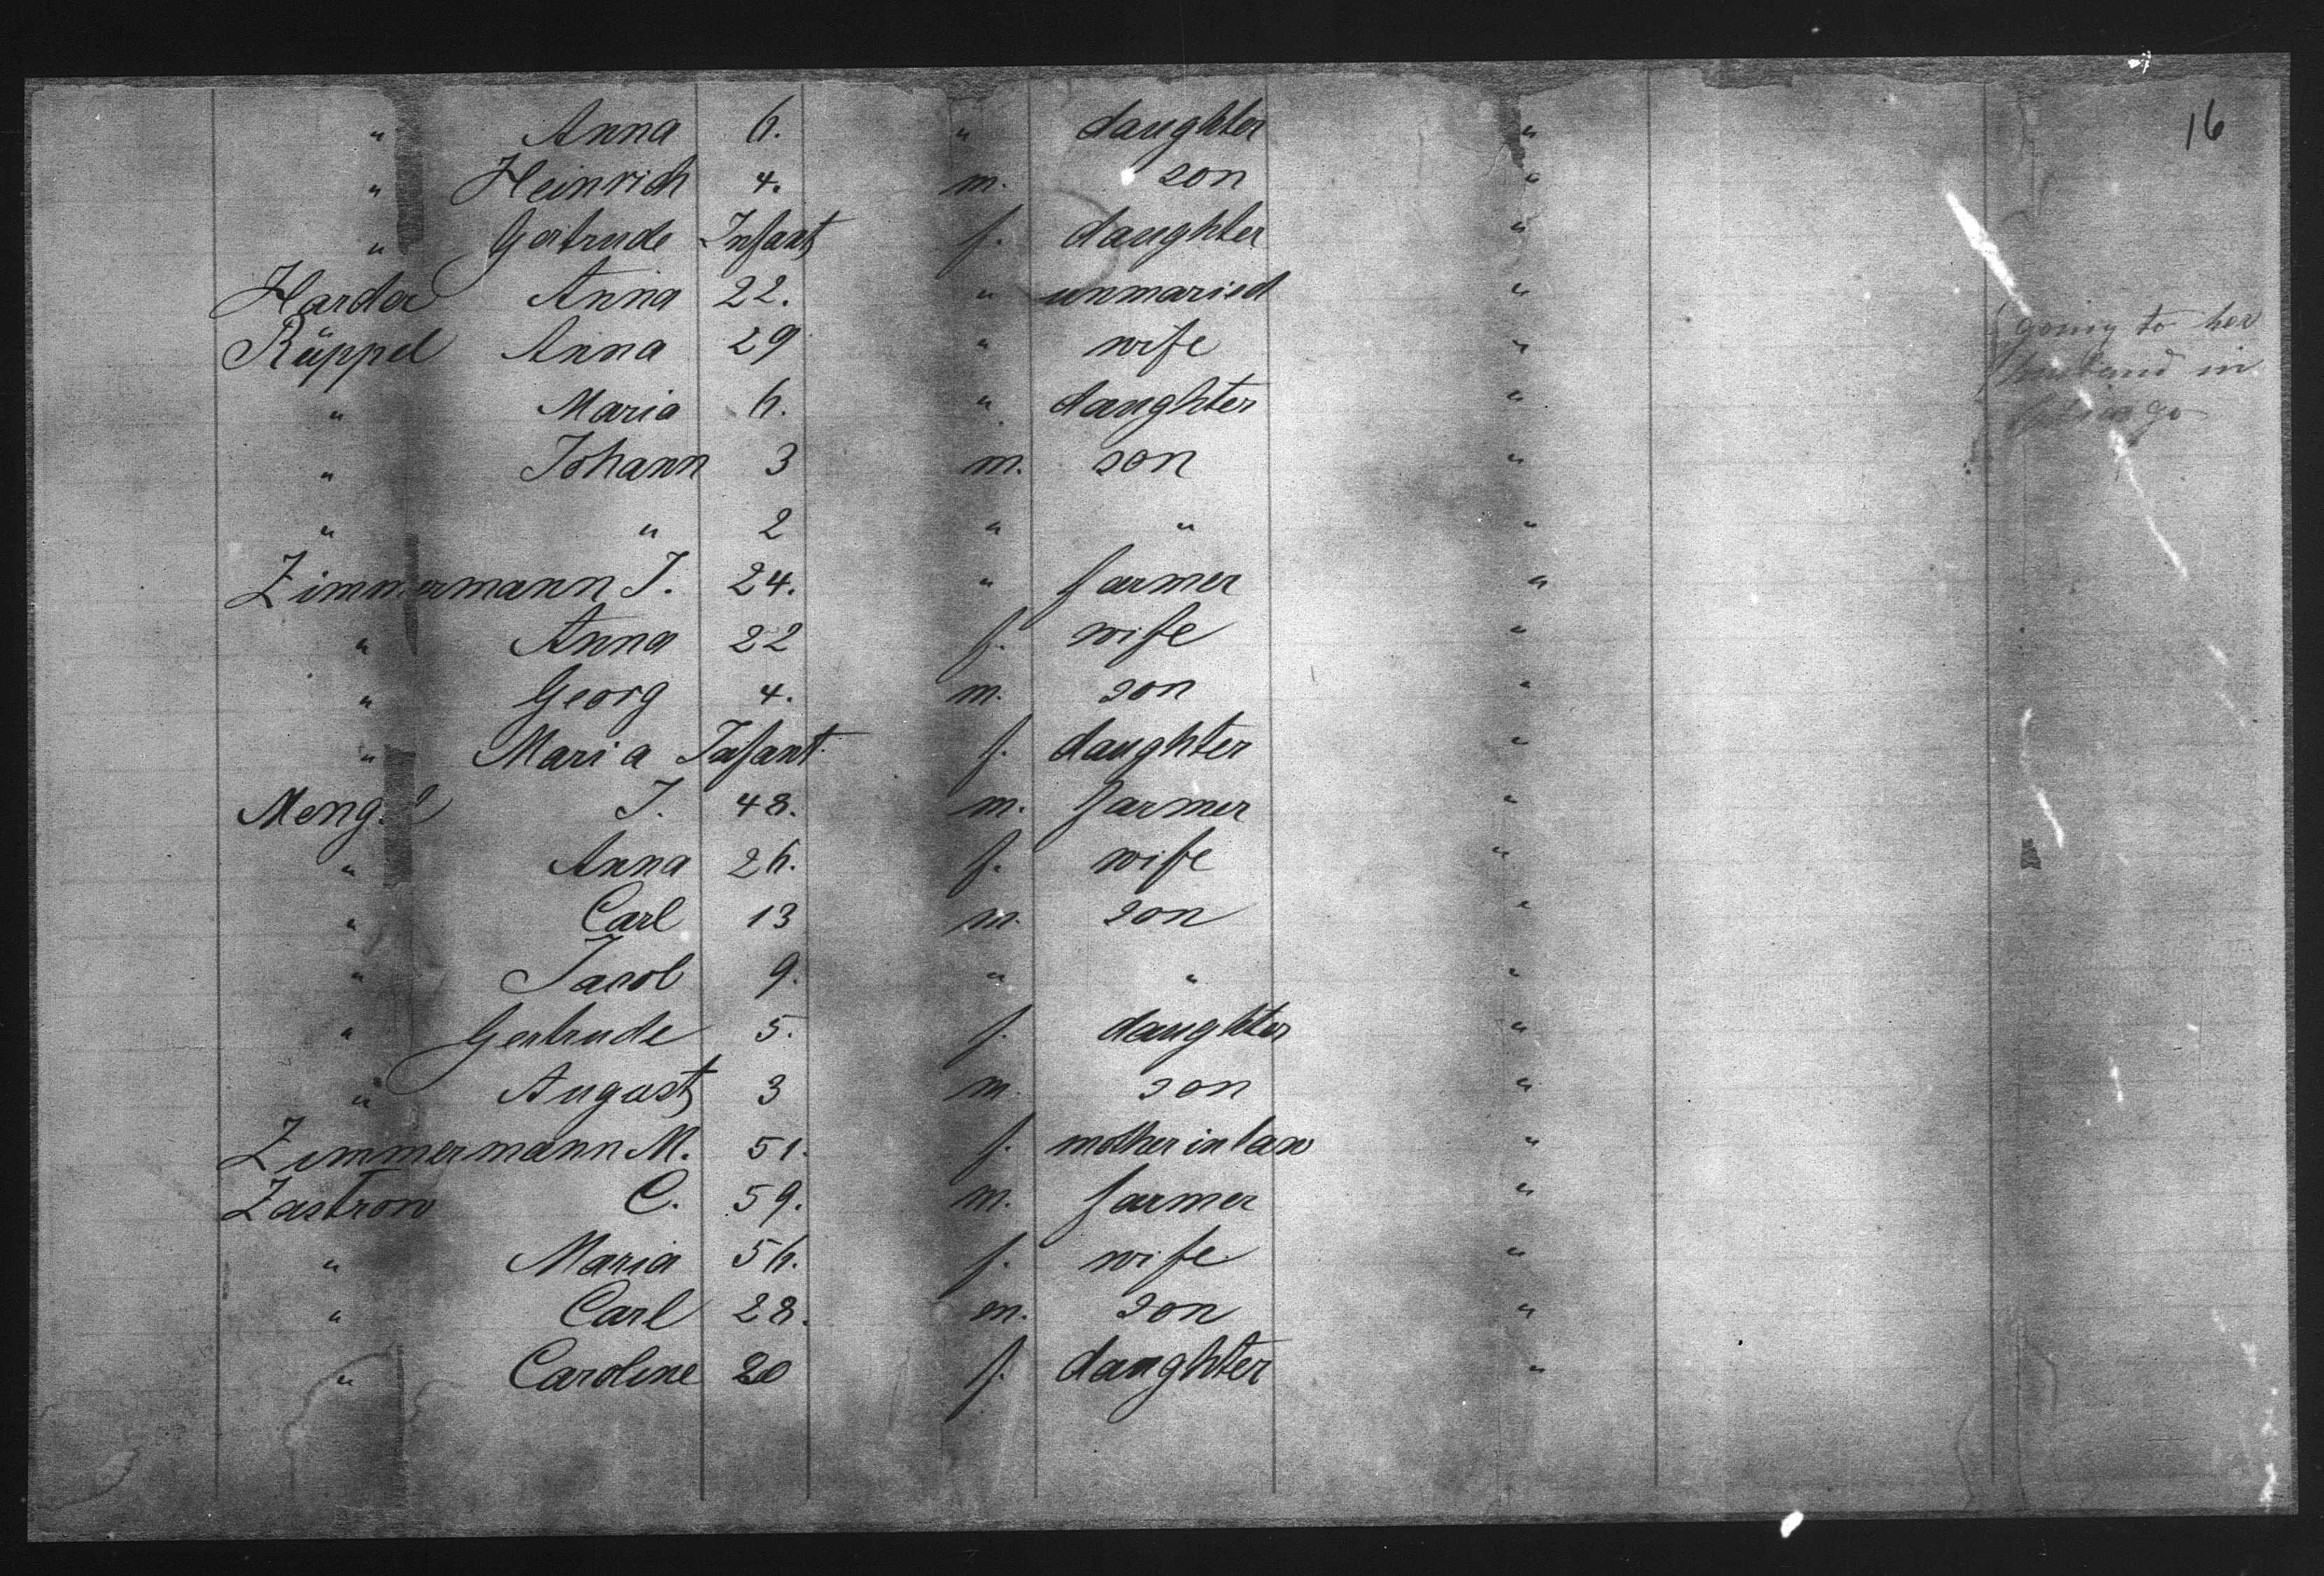 16
" Anna 6. " daughter "
" Heinrich 4. m. son "
" Gertrude Infant f. daughter "
Harder Anna 22. " unmaried "
Rüppel Anna 29 " wife " going to her
" Maria 6. " daughter " husband in
" Johann 3 m. son "
" " 2 " " "
Zimmermann J. 24. " farmer "
" Anna 22 f. wife "
" Georg 4. m. son "
" Maria Infant f. daughter "
J. 48. m. farmer "
" Anna 26. f. wife "
" Carl 13 m. son "
" Jacob 9. " " "
" Gertrude 5. f. daughter "
" August 3 m. son "
Zimmermann M. 51. f. mother in law "
Zastrow C. 59. m. farmer "
" Maria 56. f. wife "
" Carl 28. m. son "
" Caroline 20 f. daughter "